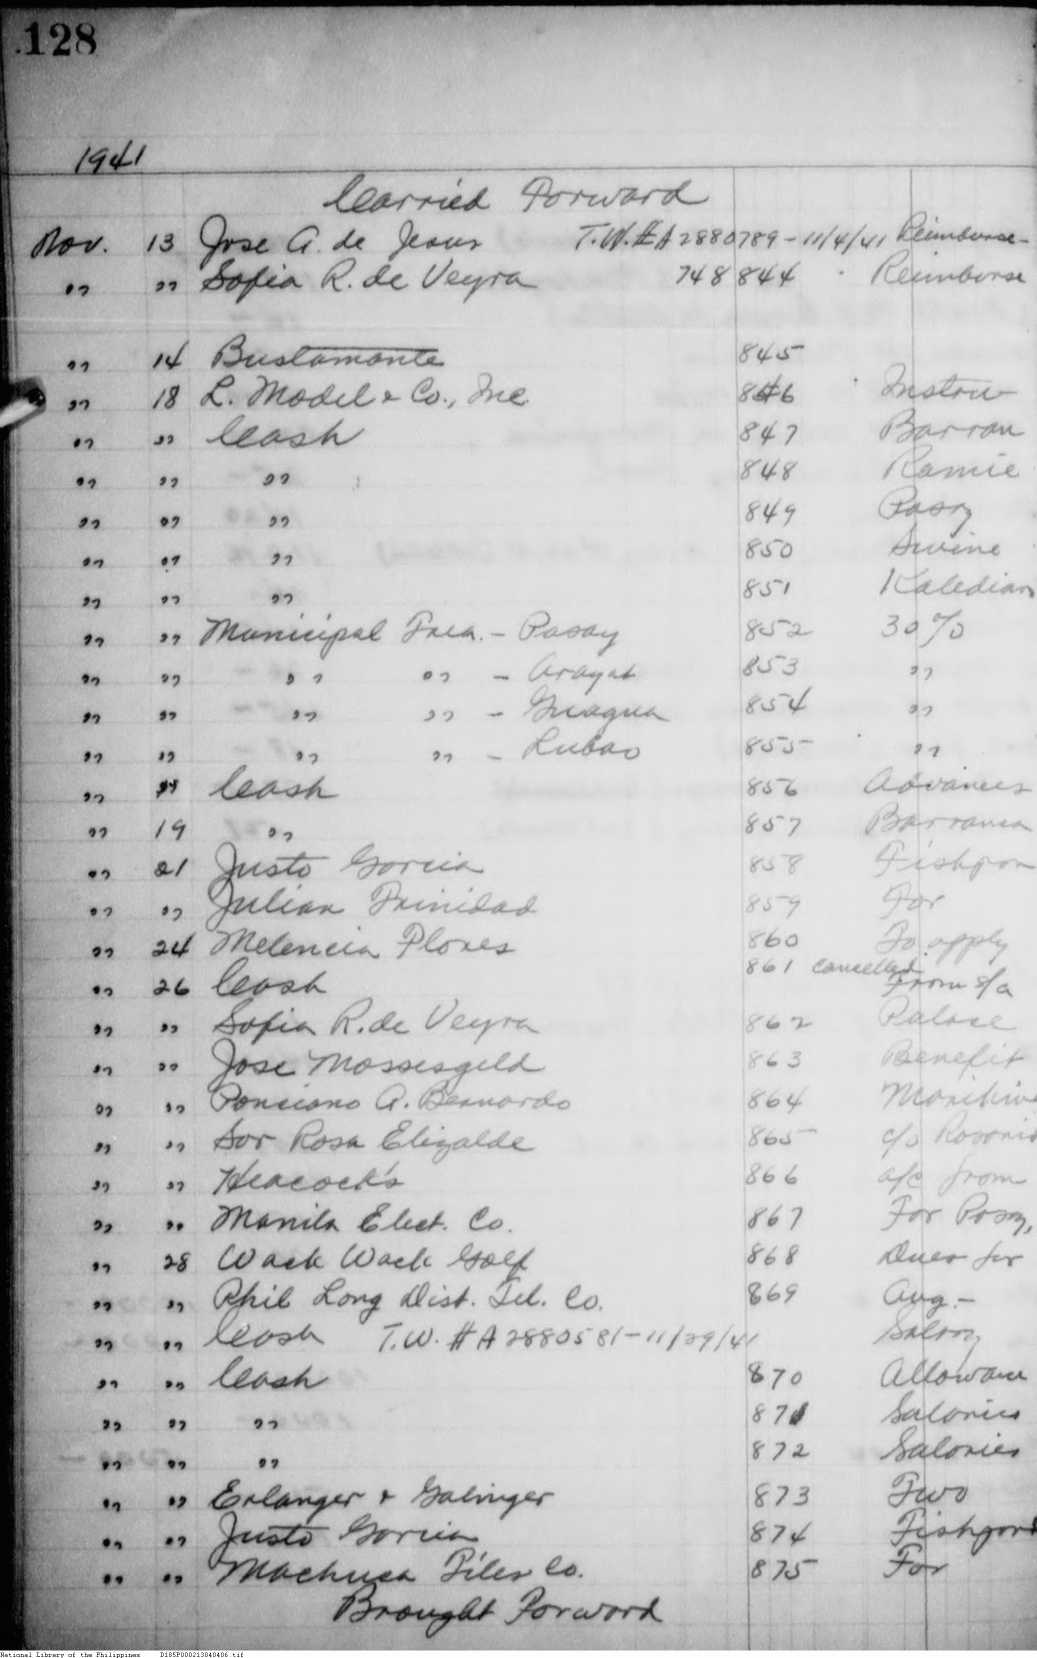 128
1941
Carried Forward
Nov. 13 Jose A. de Jesus T.W. # A2880789-11/4/41 Reimburse-
" " Sofia R. de Veyra 748 844 Reimburse
" 14 Bustamante 845
" 18 L. Model & Co., Inc. 846
" " Cash 847 Barran
" " " 848 Ramie
" " " 849 Pasay
" " " 850 Swine
" " " 851 Kaledian
" " Municipal Trea. - Pasay 852 30%
" " " " - Arayat 853 "
" " " " - Guagua 854 "
" " " " - Lubao 855 "
" " Cash 856 Advances
" 19 " 857 Barranca
" 21 Justo Garcia 858 Fishpon
" " Julian Trinidad 859 For
" 24 Melencia Flores 860 To apply
861 cancelled
" 26 Cash From s/a
" " Sofia R. de Veyra 862 Palace
" " Jose Mossesgeld 863 Benefit
" " Ponciano A. Bernardo 864 Marikina
" " Sor Rosa Elizalde 865 c/o
" " Heacock's 866 a/c from
" " Manila Elect. Co. 867 For Pasay,
" 28 Wack Wack Golf 868 Dues for
" " Phil Long Dist. Tel. Co. 869 Aug.-
" " Cash T.W. # A2880581-11/29/41 Salary
" " Cash 870 Allowance
" " " 871 Salaries
" " " 872 Salaries
" " Erlanger & Galinger 873 Two
" " Justo Garcia 874 Fishpond
" " Machuca Tiles Co. 875 For
Brought Forward
National Library of the Philippines D185P000213840406.tif